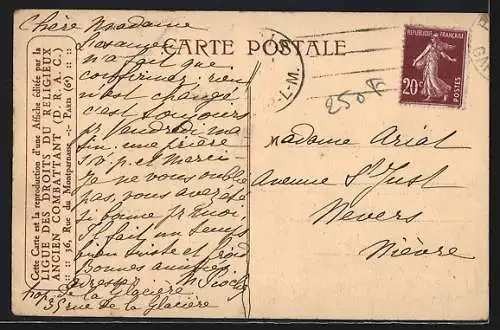 Chère Madame
CARTE POSTALE
L'examen
n'a fait que
confirmer: rien
n'est changé
c'est toujours
pr vendredi ma
fin. une prière
s. v. p. et merci
Je ne vous oublie
pas, vous avez été
si bonne pr moi.
Il fait un temps
bien triste et froid
Bonnes amitiés
adresse:
de la Glacière
35 rue de la Glacière
Cette Carte est la reproduction d'une Affiche éditée par la
LIGUE DES DROITS DU RELIGIEUX
ANCIEN COMBATTANT (D. R. A. C.)
:: :: 36, Rue du Montparnasse -:- Paris (6e) :: ::
REPUBLIQUE FRANÇAISE
20c
POSTES
L.-M.
250F
Madame Arial
Avenue St Just
Nevers
Nièvre